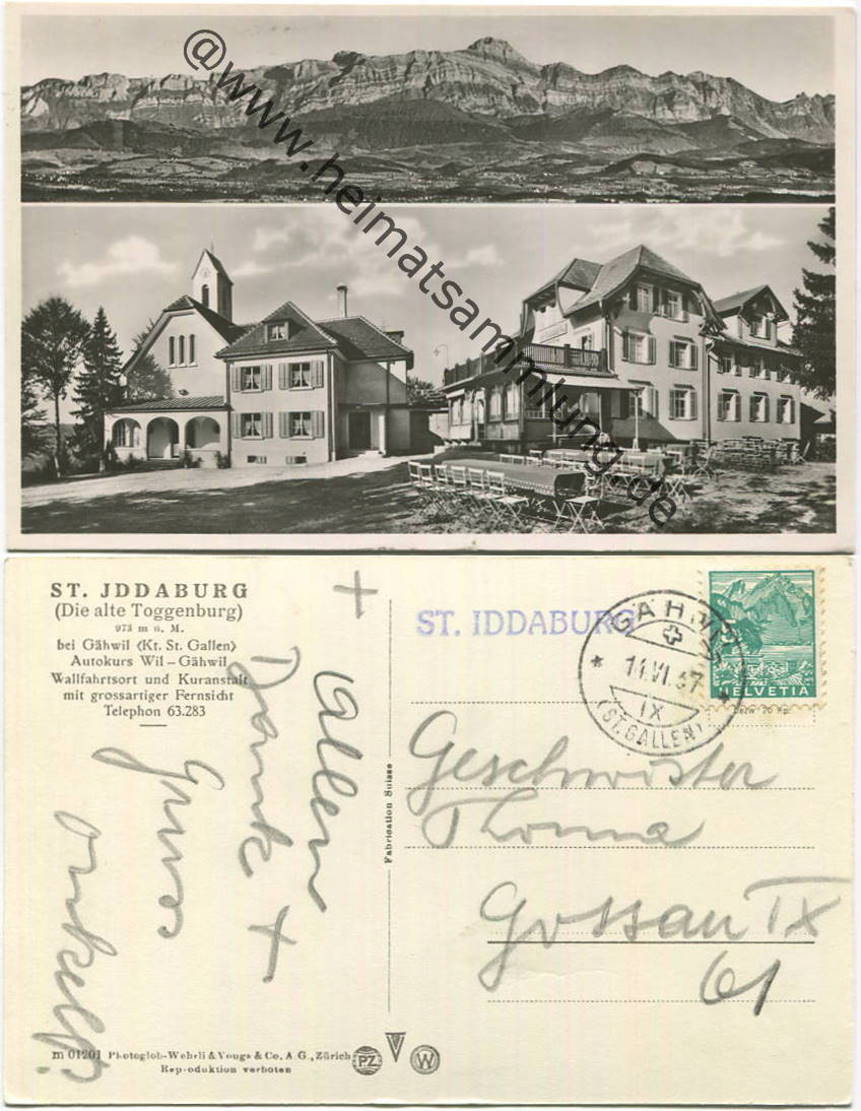 @www.heimatsammlung.de
ST. JDDABURG
(Die alte Toggenburg)
973 m ü. M.
bei Gähwil (Kt. St. Gallen)
Autokurs Wil – Gähwil
Wallfahrtsort und Kuranstalt
mit grossartiger Fernsicht
Telephon 63.283
+
Allen
Dank +
Gruss
onkel
Fabrication Suisse
ST. IDDABURG
GÄHWIL
11.VI.37
IX
(ST. GALLEN)
HELVETIA
Geschwister
Thoma
Gossau IX
61
m 01201 Photoglob-Wehrli & Vouga & Co. A G., Zürich PZ W
Reproduktion verboten